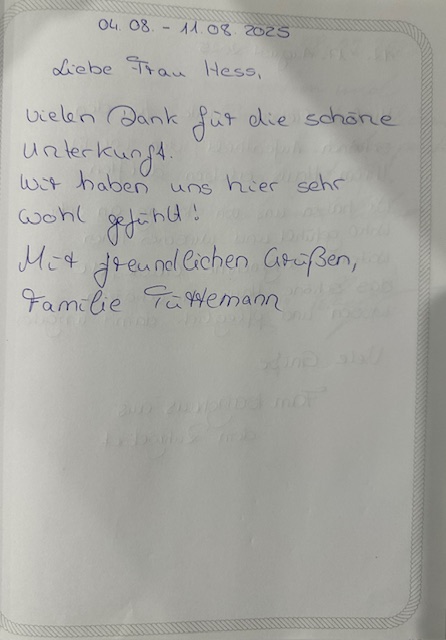 04.08. - 11.08.2025
Liebe Frau Hess,
vielen Dank für die schöne
Unterkunft.
Wir haben uns hier sehr
wohl gefühlt!
Mit freundlichen Grüßen,
Familie Tüttemann